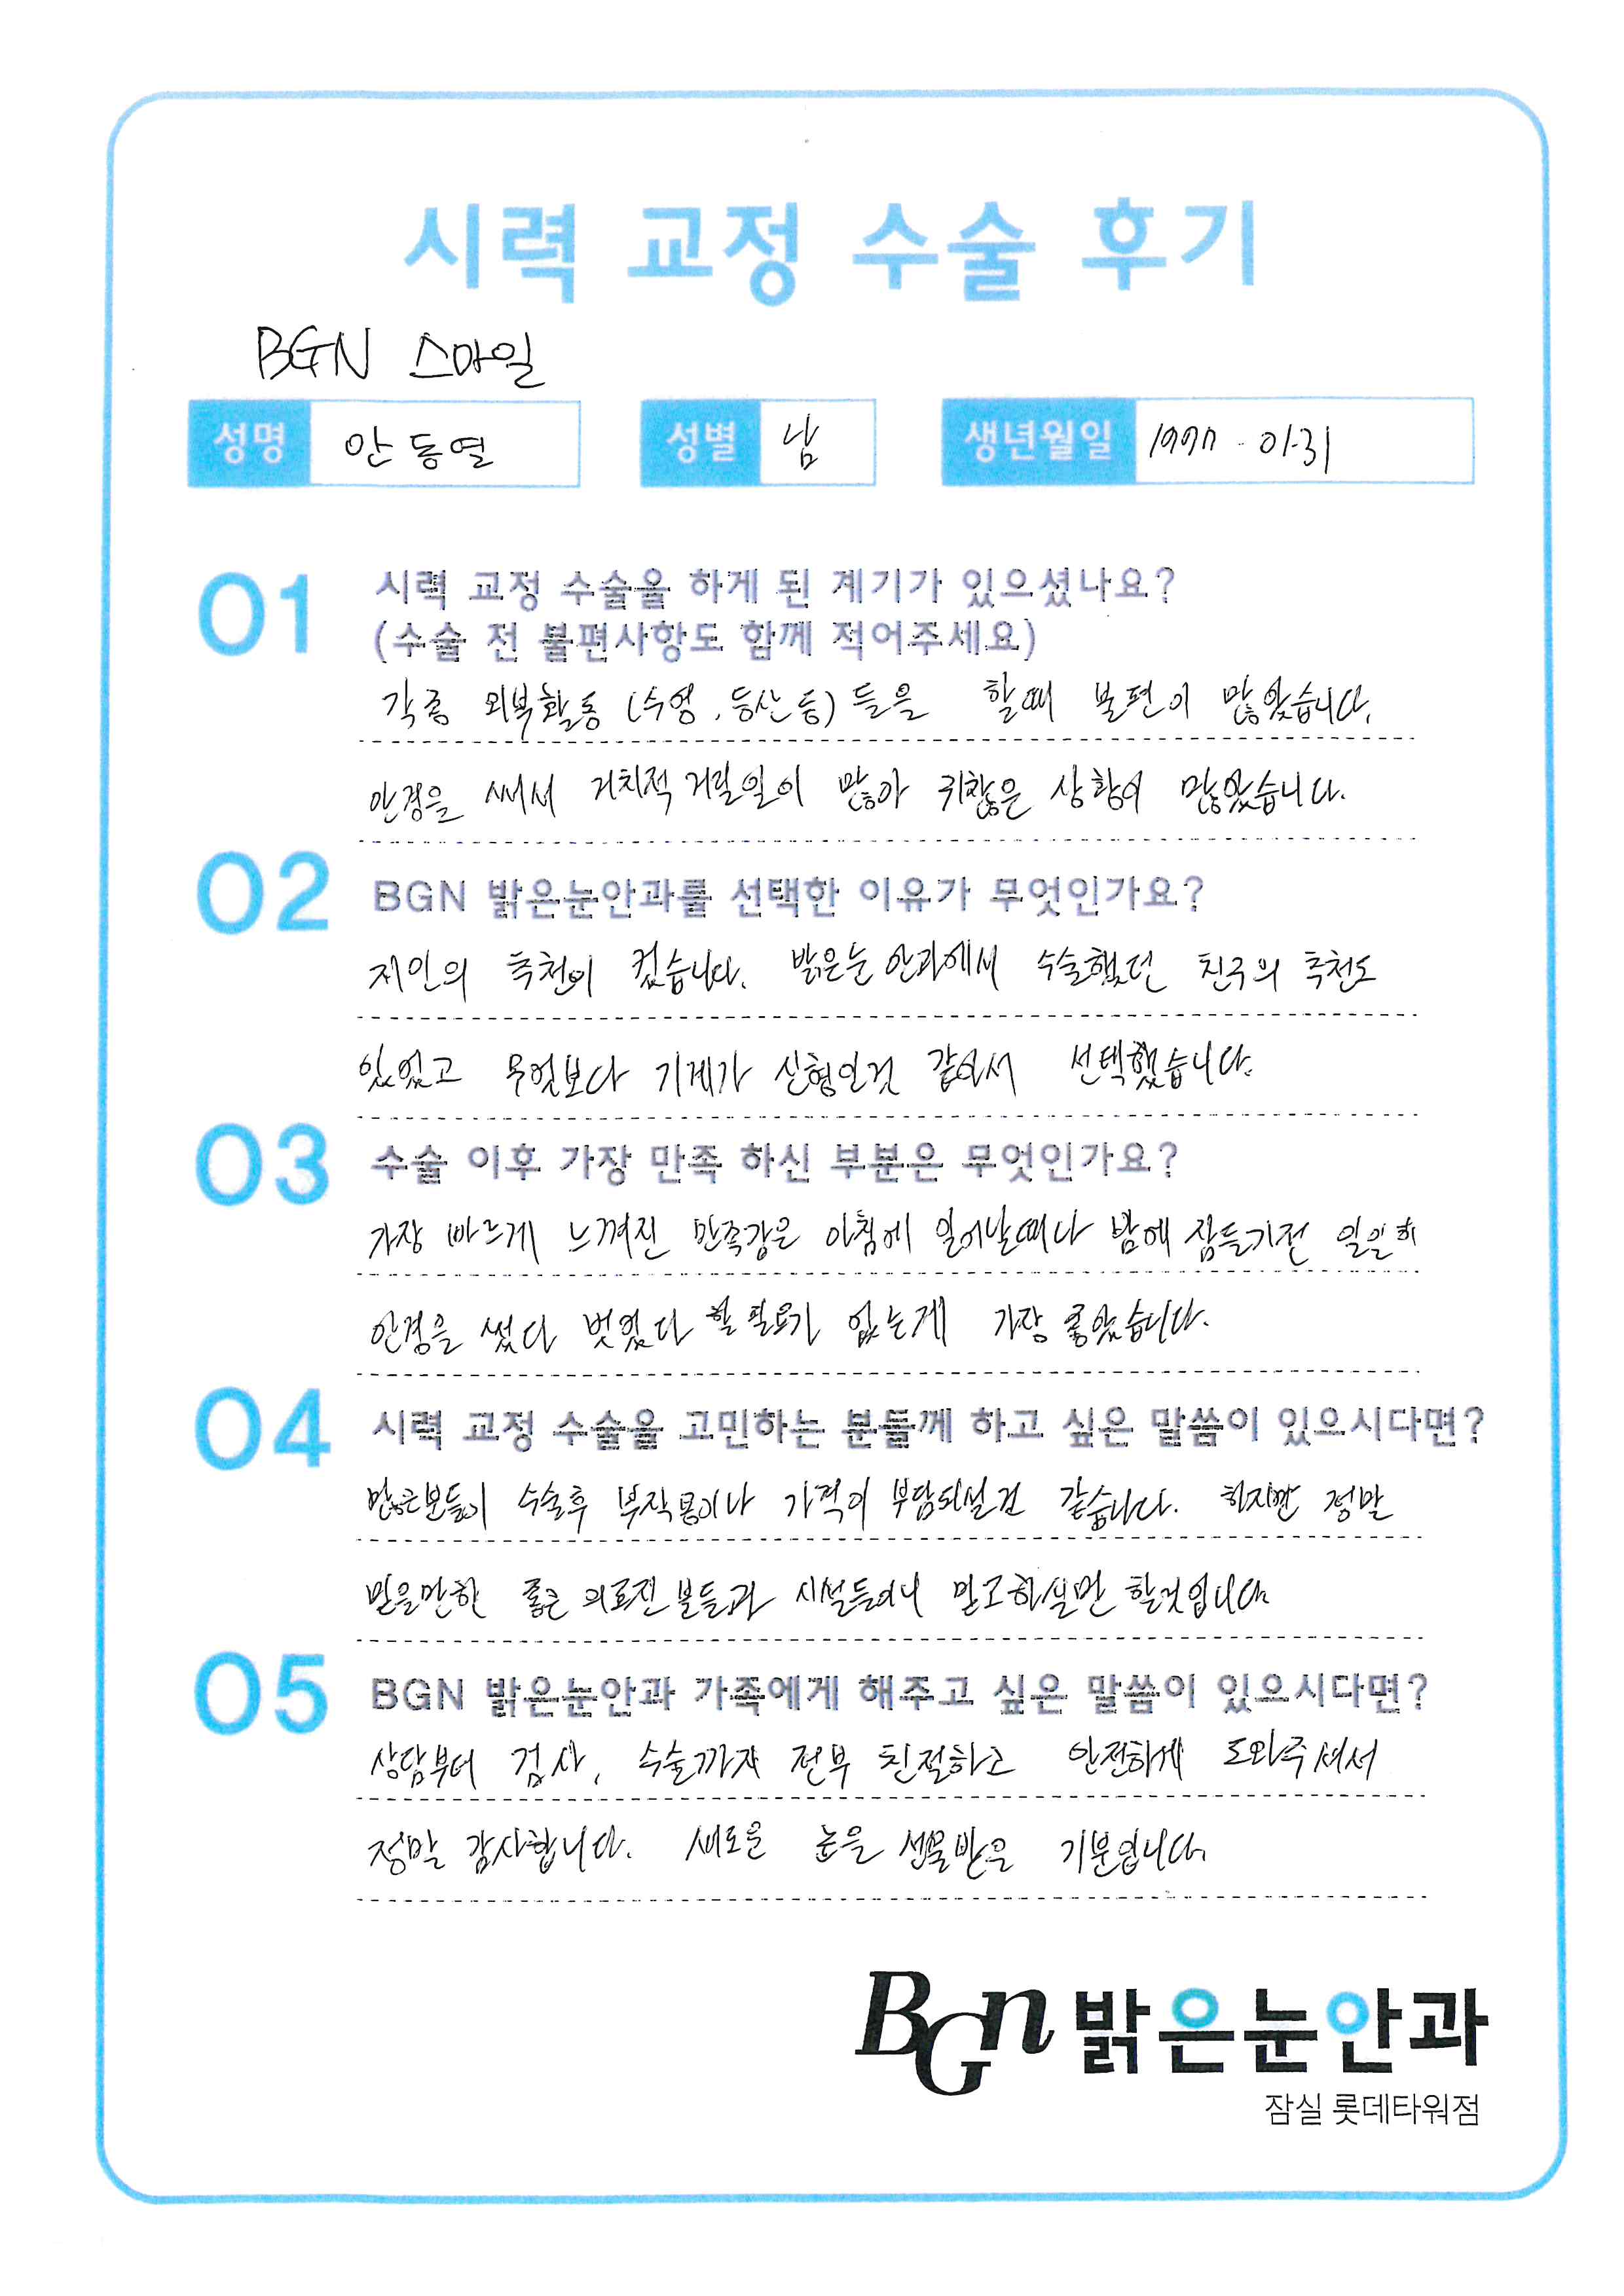 시력 교정 수술 후기
BGN 스마일
성명 안동열 성별 남 생년월일 1997-01-31
01 시력 교정 수술을 하게 된 계기가 있으셨나요?
(수술 전 불편사항도 함께 적어주세요)
각종 외부활동 (수영, 등산 등) 들을 할때 불편이 많았습니다.
안경을 써서 거치적 거릴일이 많아 귀찮은 상황이 많았습니다.
02 BGN 밝은눈안과를 선택한 이유가 무엇인가요?
지인의 추천이 컸습니다. 밝은눈 안과에서 수술했던 친구의 추천도
있었고 무엇보다 기계가 신형인것 같아서 선택했습니다.
03 수술 이후 가장 만족 하신 부분은 무엇인가요?
가장 빠르게 느껴진 만족감은 아침에 일어날때나 밤에 잠들기전 일일히
안경을 썼다 벗었다 할 필요가 없는게 가장 좋았습니다.
04 시력 교정 수술을 고민하는 분들께 하고 싶은 말씀이 있으시다면?
많은분들이 수술후 부작용이나 가격이 부담되실건 같습니다. 하지만 정말
믿을만한 좋은 의료진 분들과 시설들이니 믿고하실만 할것입니다
05 BGN 밝은눈안과 가족에게 해주고 싶은 말씀이 있으시다면?
상담부터 검사, 수술까지 전부 친절하고 안전하게 도와주셔서
정말 감사합니다. 새로운 눈을 선물받은 기분입니다.
BGN 밝은눈안과
잠실 롯데타워점